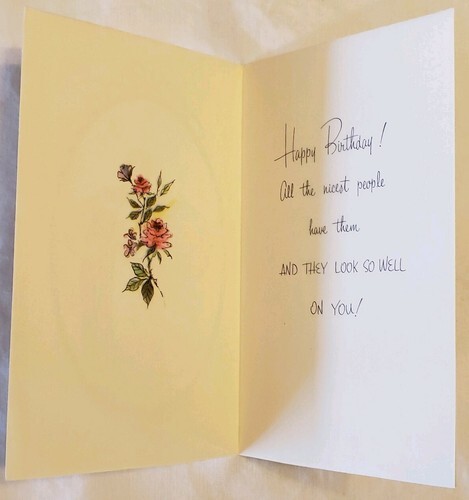 Happy Birthday!
All the nicest people
have them
AND THEY LOOK SO WELL
ON YOU!